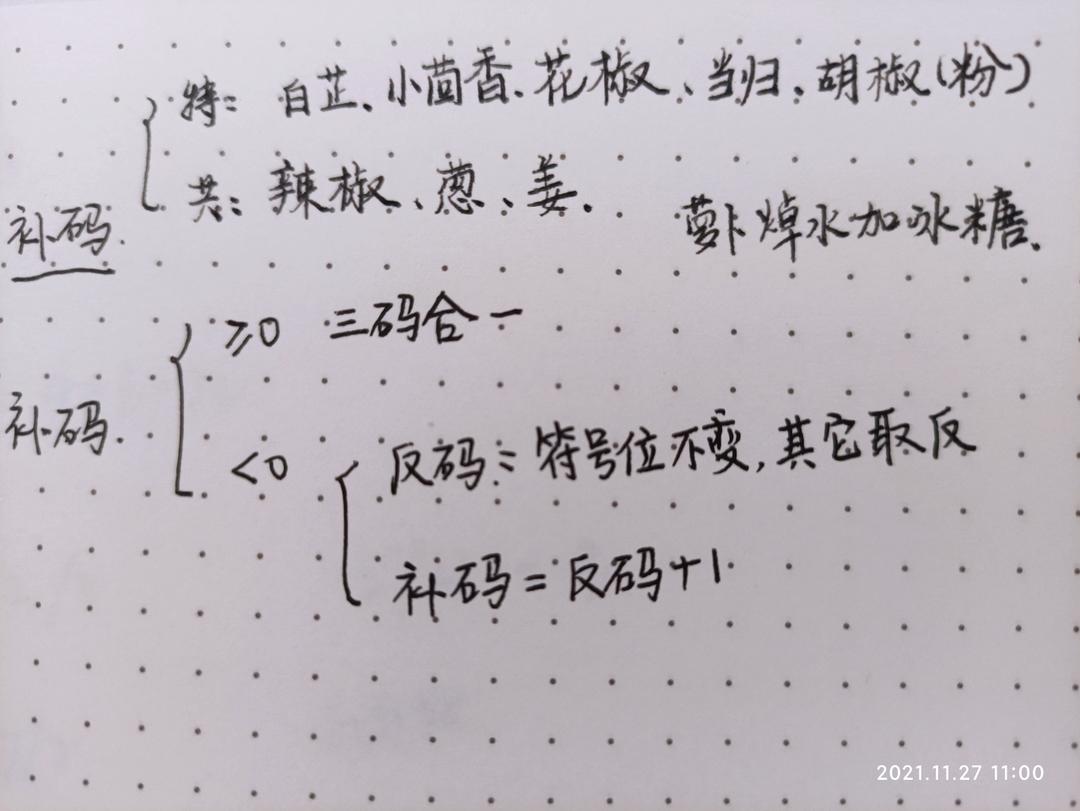 特: 白芷、小茴香、花椒、当归、胡椒(粉)
共: 辣椒、葱、姜.
补码.
萝卜焯水加冰糖.
≥0 三码合一
补码.
<0
反码: 符号位不变,其它取反
补码=反码+1
2021.11.27 11:00